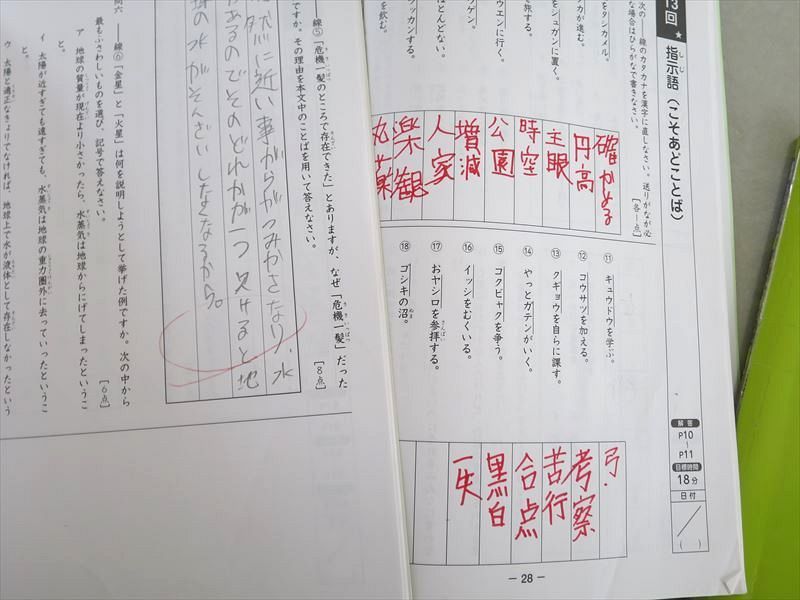 13回 ★ 指示語（こそあどことば）
しじ
次の――線のカタカナを漢字に直しなさい。送りがなが必
な場合はひらがなで書きなさい。
[各1点]
をタシカメル。
カが進む。
をシュガンに置く。
旅する。
ウエンに行く。
ゲン。
ほとんどない。
ッカンする。
を飲む。
確かめる
円高
主眼
時空
公園
増減
人家
楽観
丸薬
⑪ キュウドウを学ぶ。
⑫ コウサツを加える。
⑬ クギョウを自らに課す。
⑭ やっとガテンがいく。
⑮ コクビャクを争う。
⑯ イッシをむくいる。
⑰ おヤシロを参拝する。
さんぱい
⑱ ゴシキの沼。
ぬま
弓
考察
苦行
合点
黒白
一矢
解答
P10
P11
目標時間
18分
日付
／
（ ）
― 28 ―
――線⑤「危機一髪のところで存在できた」とありますが、なぜ「危機一髪」だった
ですか。その理由を本文中のことばを用いて答えなさい。
[8点]
に近い事がらがつみかさなり、水
あるのでそのどれかが一つ欠けると地
の水がそんざいしなくなるから。
問六 ――線⑥「金星」と「火星」は何を説明しようとして挙げた例ですか。次の中から
最もふさわしいものを選び、記号で答えなさい。
[6点]
ア 地球の質量が現在より小さかったら、水蒸気は地球からにげてしまったというこ
と。
イ 太陽が近すぎても遠すぎても、水蒸気は地球の重力圏外に去っていったというこ
と。
ウ 太陽と適正なきょりでなければ、地球上で水が液体として存在しなかったという